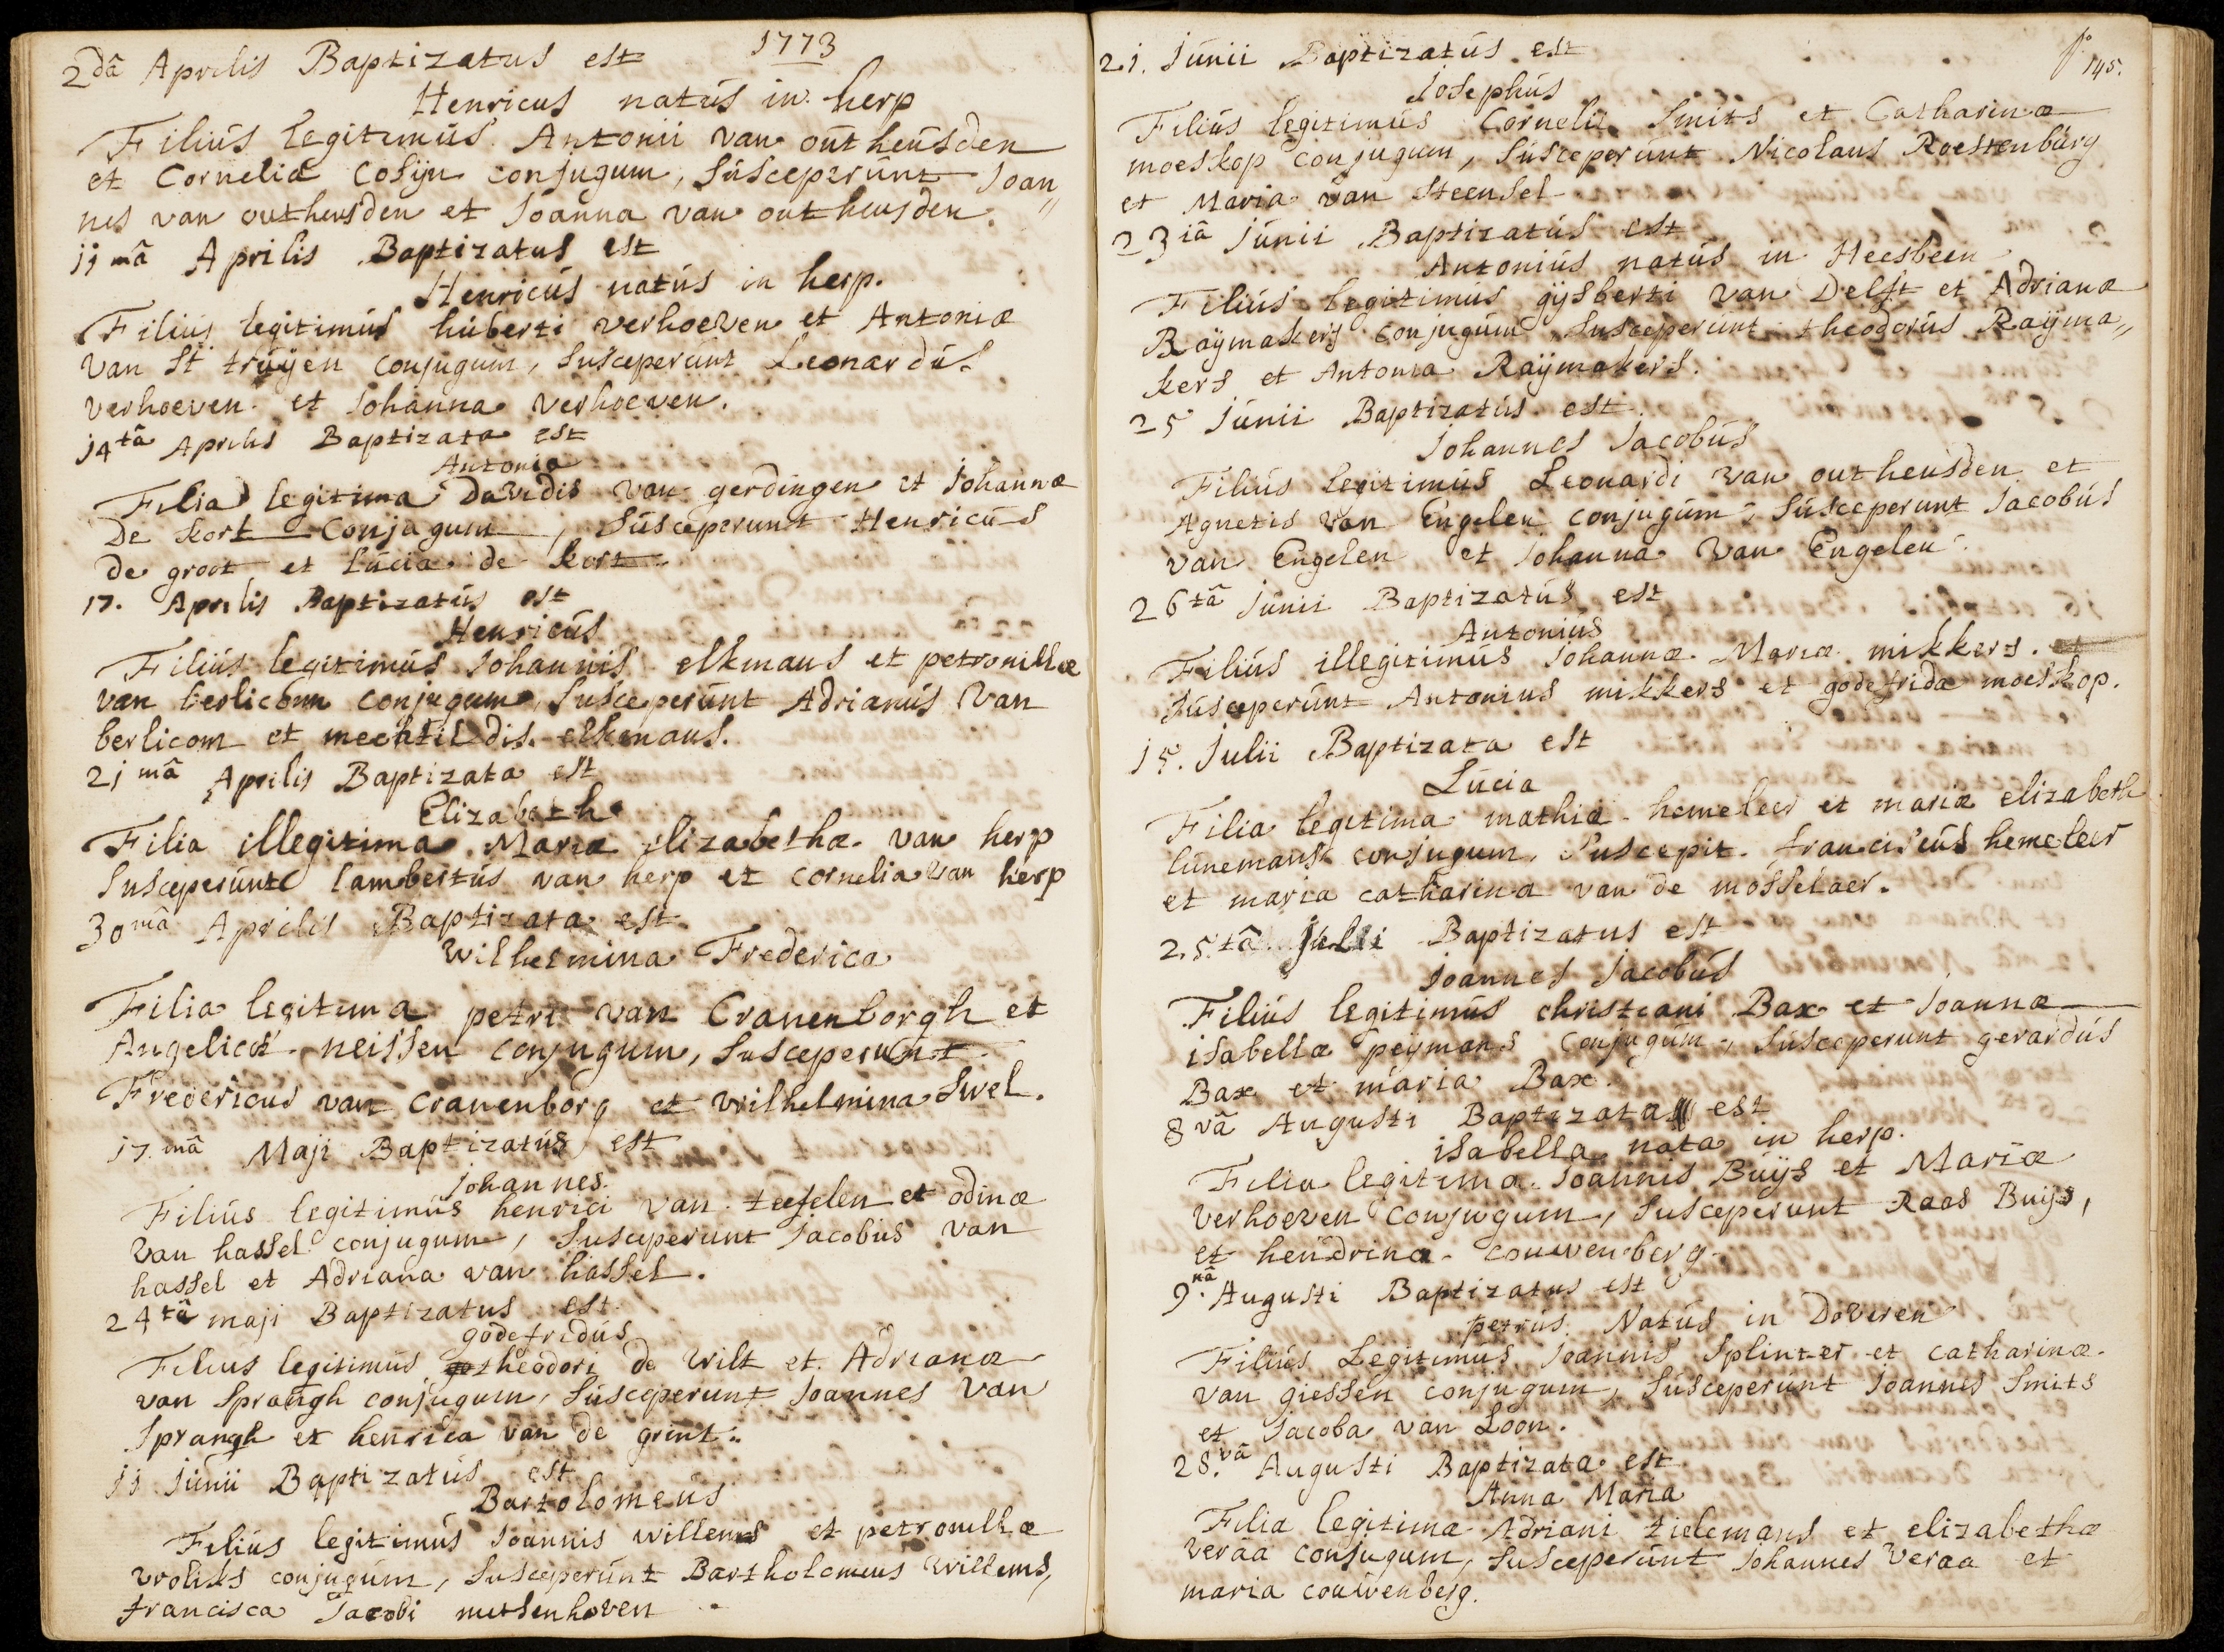 1773
2dâ Aprilis Baptizatus est
Henricus natús in herp
Filiús legitimús Antonii van outheúsden
et Corneliæ Cosijn conjugum, súsceperúnt Joan„
nes van outheusden et Joanna van outheusden.
11mâ Aprilis Baptizatus est
Henricús natús in herp.
Filiús legitimús húberti verhoeven et Antoniæ
van St trúÿen conjugúm, súsceperúnt Leonardús
verhoeven et Johanna verhoeven.
14tâ Aprilis Baptizata est
Antonia
Filia legitima Davidis van gerdingen et Johannæ
De kort Conjugum, Súsceperunt Henricús
de groot et Lúcia de kort
17. Aprilis Baptizatús est
Henricús
Filiús legitimús Johannis elkmans et petronillæ
van berlicom conjugum, Súsceperúnt Adrianús van
berlicom et mechtildis elkmans.
21mâ Aprilis Baptizata est
Elizabeth
Filia illegitima Mariæ elizabethæ van herp
Susceperúnt lambertús van herp et cornelia van herp
30mâ Aprilis Baptizata est
Wilhelmina Frederica
Filia legitima petri van Cranenborgh et
Angelicæ neissen conjugum, Susceperunt
Fredericus van cranenborg et wilhelmina Swel.
17.mâ Maji Baptizatús est
Johannes.
Filiús legitimús henrici van tefelen et odinæ
van hassel conjugum, susceperunt Jacobús van
hassel et Adriana van hassel.
24tâ maji Baptizatus est
godefridús
Filius legitimús theodori de wilt et Adrianæ
van Sprangh conjugum, Súsceperunt Joannes van
Sprangh et henrica van de grint.
11 Júnii Baptizatús est
Bartolomeús
Filiús legitimús Joannis willems et petronillæ
vrolixs conjugúm, Susceperúnt Bartholomeus willems,
francisca Jacobi metsenhoven
fo 145.
21. Júnii Baptizatús est
Josephús
Filiús legitimús Cornelii Smits et Catharinæ
moeskop conjugum, Súsceperúnt Nicolaus Roestenbúrg
et Maria van Steensel
23iâ Júnii Baptizatús est
Antoniús natús in Heesbeen
Filiús legitimús gÿsberti van Delft et Adrianæ
Raÿmakers conjugúm, Susceperúnt theodorús Raÿma„
kers et Antonia Raÿmakers.
25 Júnii Baptizatús est
Johannes Jacobús
Filiús legitimús Leonardi van outheusden et
Agnetis van Engelen conjugúm, Súsceperunt Jacobús
van Engelen et Johanna van Engelen.
26tâ Júnii Baptizatús est
Antoniús
Filiús illegitimús Johannæ Mariæ mikkers.
Súsceperúnt Antonius mikkers et godefrida moeskop.
15. Julii Baptizata est
Lúcia
Filia legitima mathiæ hemeleer et mariæ elizabeth
lúnemans conjugum, Suscepit franciscús hemeleer
et maria catharina van de mosselaer.
25.tâ Julii Baptizatus est
Joannes Jacobús
Filiús legitimús christiani Bax et Joannæ
isabellæ peÿmans Conjugúm, Súsceperunt gerardús
Bax et maria Bax.
8vâ Augusti Baptizata est
isabella nata in herp.
Filia legitima Joannis Búÿs et Mariæ
verhoeven Conjugum, Susceperunt Raos Buijs,
et hendrina couwenberg.
9.nâ Augusti Baptizatus est
petrús Natús in Doveren
Filiús Legitimús Joannis Splinter et catharinæ
van giessen conjugum, Súsceperúnt Joannes Smits
et Jacoba van Loon.
28.vâ Augusti Baptizata est
Anna Maria
Filia legitima Adriani tielemans et elizabethæ
veraa conjugum, Susceperúnt Johannes veraa et
maria couwenberg.